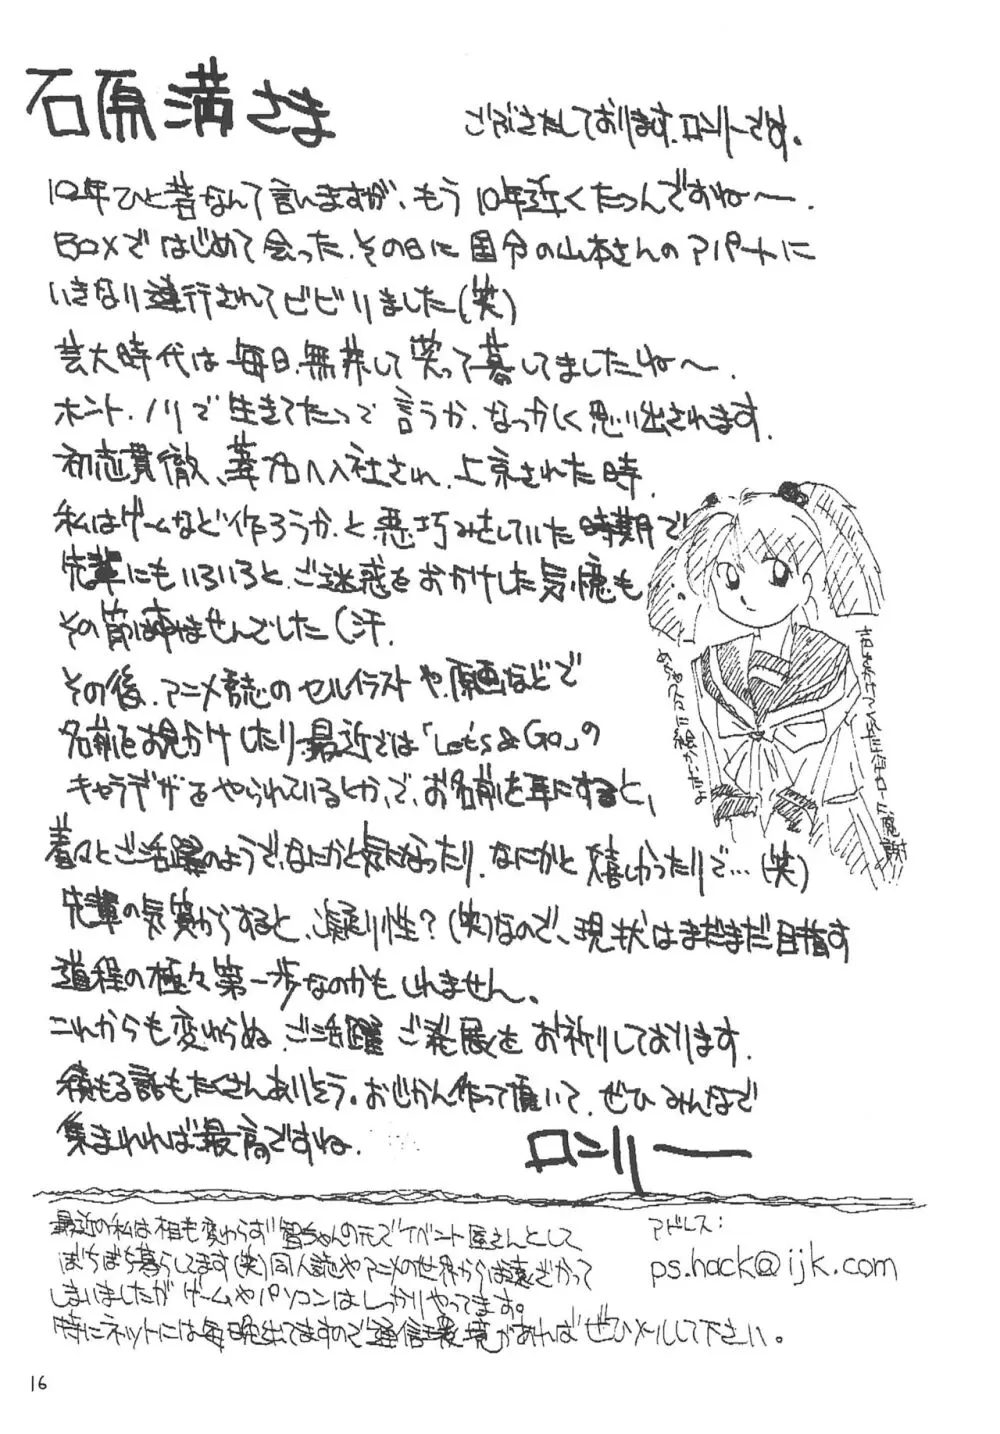 石原満さま
ごぶさたしております、ロンリーです。
10年ひと昔なんて言いますが、もう10年近くたつんですね〜.
BOXではじめて会った、その日に国分の山本さんのアパートに
いきなり連行されてビビリました(笑)
芸大時代は毎日、無茶して笑って暮してましたね〜.
ホント、ノリで生きてたって言うか、なつかしく思い出されます.
初志貫徹、葦プロへ入社され、上京された時、
私はゲームなど作ろうか、と悪巧みをしていた時期で
先輩にもいろいろと、ご迷惑をおかけした気憶も、
その節は すみませんでした(汗.
その後、アニメ誌のセルイラストや、原画などで
名前をお見かけしたり、最近では「Let's & Go」の
キャラデザをやられているとか、で、お名前を耳にすると、
着々とご活躍のようで、なにかと気になったり、なにかと嬉しかったりで…(笑)
先輩の気質からすると、凝り性?(笑)なので、現状はまだまだ目指す
道程の極々第一歩なのかもしれません。
これからも変わらぬ、ご活躍 ご発展をお祈りしております.
積もる話もたくさんありそう。おじかん作って頂いて、ぜひみんなで
集まれれば最高ですね.
ロンリー
最近の私は相も変わらず 智ちゃんの元でイベント屋さんとして
ぼちぼち暮らしてます(笑)同人誌やアニメの世界からは遠ざかって
しまいましたが ゲームやパソコンはしっかりやってます。
特にネットには毎晩出てますので通信環境があればぜひメールして下さい。
アドレス:
ps.hack@ijk.com
16